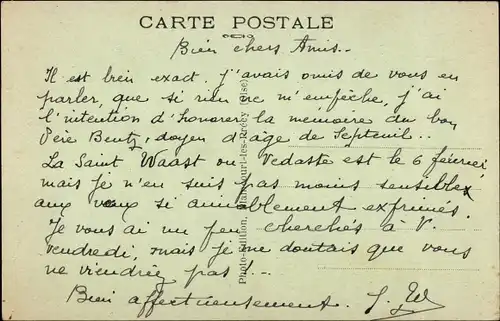 CARTE POSTALE
Bien chers Amis.
Il est bien exact. j'avais omis de vous en
parler, que si rien ne m'empêche, j'ai
l'intention d'honorer la mémoire du bon
Père Bentz, doyen d'âge de Septeuil..
La Saint Waast ou Vedaste est le 6 février
mais je n'en suis pas moins sensible
aux vœux si aimablement exprimés.
Je vous ai un peu cherchés à V.
vendredi, mais je me doutais que vous
ne viendriez pas !..
Bien affectueusement.
Photo-Edition,